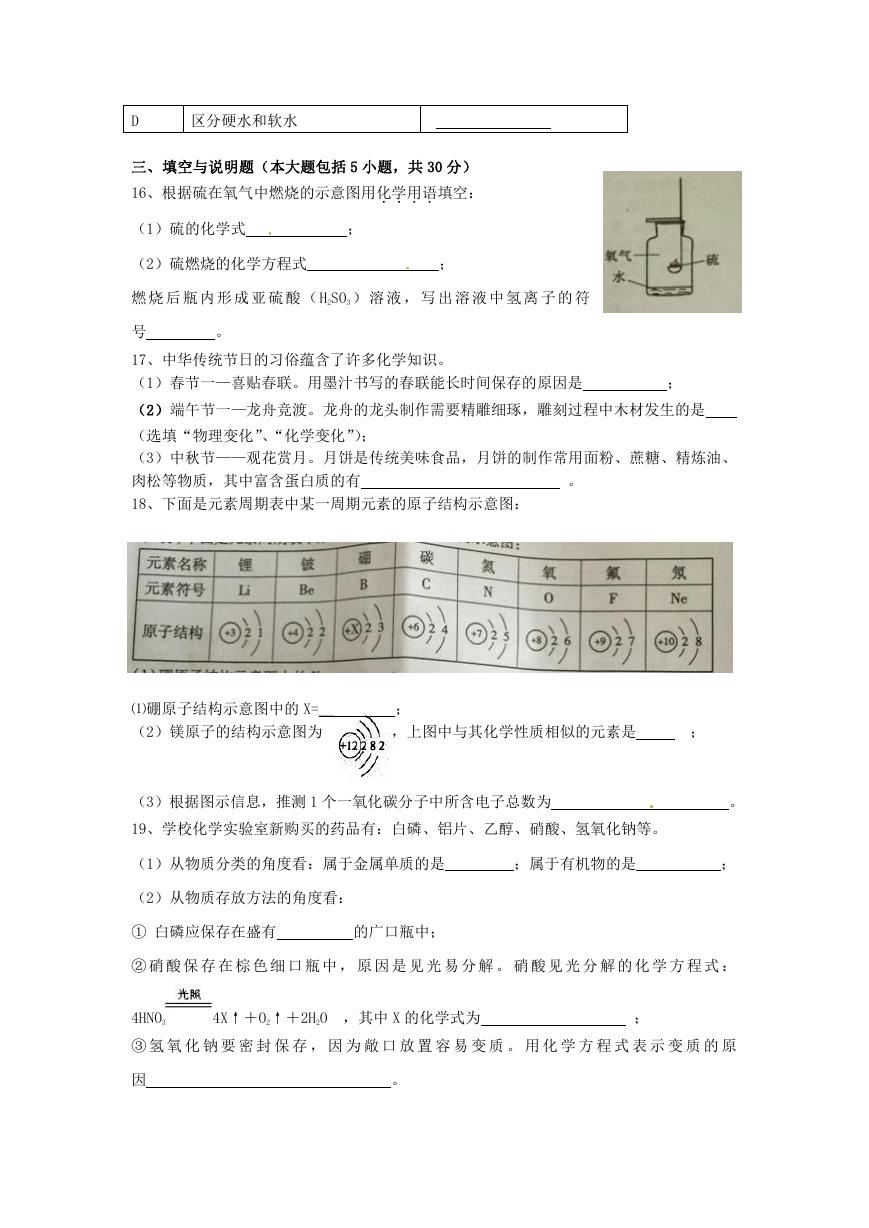 D 区分硬水和软水
三、填空与说明题（本大题包括 5 小题，共 30 分）
16、根据硫在氧气中燃烧的示意图用化学用语填空：
（1）硫的化学式            ；
（2）硫燃烧的化学方程式                ；
氧气
硫
水
燃烧后瓶内形成亚硫酸（H₂SO₃）溶液，写出溶液中氢离子的符
号         。
17、中华传统节日的习俗蕴含了许多化学知识。
（1）春节一—喜贴春联。用墨汁书写的春联能长时间保存的原因是           ；
（2）端午节一—龙舟竞渡。龙舟的龙头制作需要精雕细琢，雕刻过程中木材发生的是
（选填“物理变化”、“化学变化”）；
（3）中秋节——观花赏月。月饼是传统美味食品，月饼的制作常用面粉、蔗糖、精炼油、
肉松等物质，其中富含蛋白质的有                          。
18、下面是元素周期表中某一周期元素的原子结构示意图：
元素名称 锂 铍 硼 碳 氮 氧 氟 氖
元素符号 Li Be B C N O F Ne
原子结构 +3 2 1 +4 2 2 +X 2 3 +6 2 4 +7 2 5 +8 2 6 +9 2 7 +10 2 8
⑴硼原子结构示意图中的 X=          ；
（2）镁原子的结构示意图为 +12 2 8 2 ，上图中与其化学性质相似的元素是       ；
（3）根据图示信息，推测 1 个一氧化碳分子中所含电子总数为                       。
19、学校化学实验室新购买的药品有：白磷、铝片、乙醇、硝酸、氢氧化钠等。
（1）从物质分类的角度看：属于金属单质的是         ；属于有机物的是           ；
（2）从物质存放方法的角度看：
① 白磷应保存在盛有          的广口瓶中；
②硝酸保存在棕色细口瓶中，原因是见光易分解。硝酸见光分解的化学方程式：
光照
4HNO₃ 4X↑＋O₂↑＋2H₂O ，其中 X 的化学式为                   ；
③氢氧化钠要密封保存，因为敞口放置容易变质。用化学方程式表示变质的原
因                                。